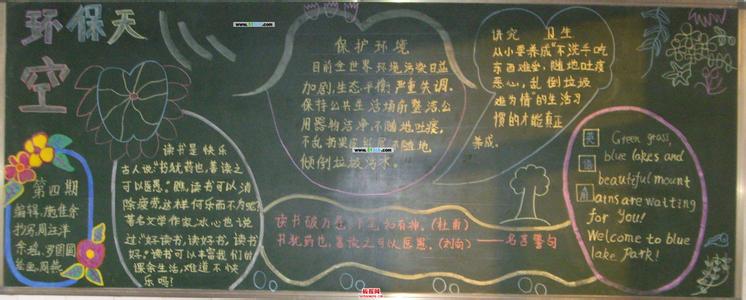 环保天
空
第四期
编辑:施佳余
抄写:周江洋
余聪、罗圆圆
绘画:周燕
读书是快乐
古人说:"书犹药也,善读之
可以医愚。"瞧,读书可以消
除疲劳,这样何乐而不为呢?
著名文学作家,冰心也说
过:"好读书,读好书,读书
好。"读书可以丰富我们的
课余生活,难道不快乐
吗!
保护环境
目前全世界环境污染日益
加剧,生态平衡严重失调.
保持公共生活场所整洁,公
用器物洁净,不随地吐痰,
不乱扔果皮纸屑,不随地
倾倒垃圾污水.
讲究 卫生
从小要养成"不洗手吃
东西难学,随地吐痰
恶心,乱倒垃圾
难为情"的生活习
惯的才能真正
养成.
读书破万卷,下笔如有神。(杜甫)
书犹药也,善读之可以医愚。(刘向)——名言警句
英
语
角
Green grass,
blue lakes and
beautiful mount
ains are waiting
for You!
Welcome to blue
lake Park!